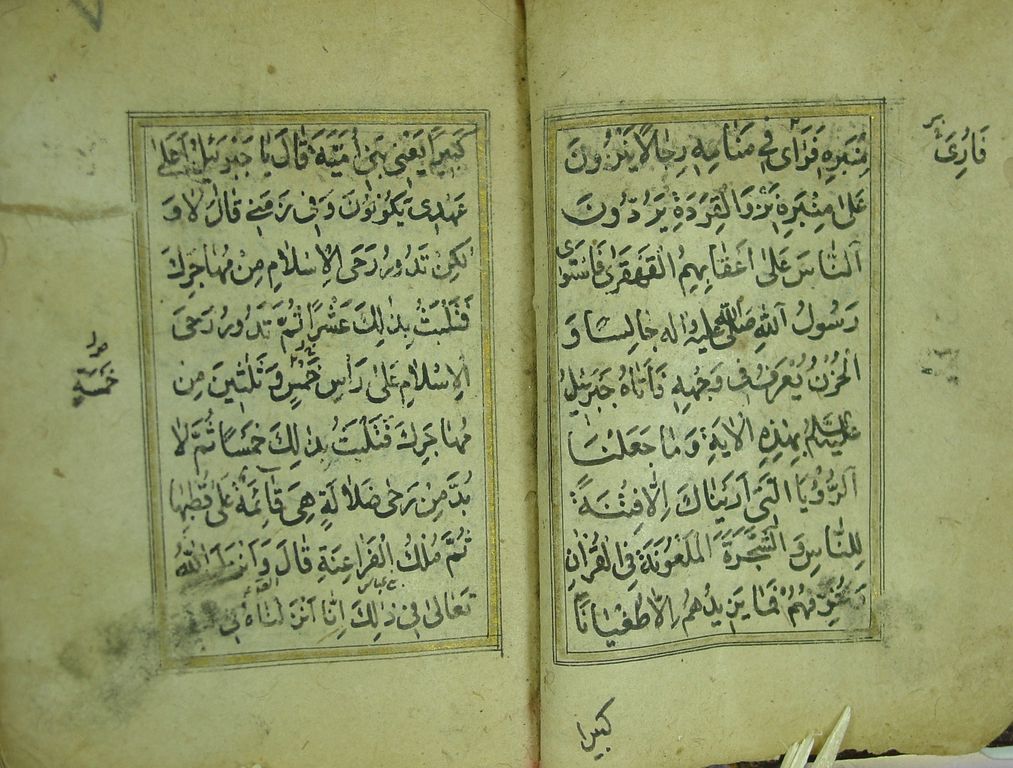 مِنْبَرِهِ فَرَاٰى فِي مَنَامِهِ رِجَالًا يَنْزُونَ
عَلٰى مِنْبَرِهِ نَزْوَ الْقِرَدَةِ يَرُدُّونَ
اَلنَّاسَ عَلٰى اَعْقَابِهِمُ الْقَهْقَرٰى فَاسْتَوٰى
رَسُولُ اَللّٰهِ صَلَّى اللّٰهُ عَلَيْهِ وَاٰلِهِ جَالِسًا وَ
الْحُزْنُ يُعْرَفُ فِي وَجْهِهِ فَاَتَاهُ جَبْرَئِيلُ
عَلَيْهِ السَّلَامُ بِهٰذِهِ الْاٰيَةِ وَمَا جَعَلْنَا
اَلرُّؤْيَا الَّتِي اَرَيْنَاكَ اِلَّا فِتْنَةً
لِلنَّاسِ وَالشَّجَرَةَ الْمَلْعُونَةَ فِي الْقُرْاٰنِ
وَنُخَوِّفُهُمْ فَمَا يَزِيدُهُمْ اِلَّا طُغْيَانًا
كَبِيرًا
فَارُِىَ
كَبِيرًا يَعْنِي بَنِي اُمَيَّةَ قَالَ يَا جَبْرَئِيلُ اَعَلٰى
عَهْدِي يَكُونُونَ وَفِي زَمَنِي قَالَ لَا وَ
لٰكِنْ تَدُورُ رَحَى الْاِسْلَامِ مِنْ مُهَاجَرِكَ
فَتَلْبَثُ بِذٰلِكَ عَشْرًا ثُمَّ تَدُورُ رَحَى
الْاِسْلَامِ عَلٰى رَأْسِ خَمْسٍ وَثَلٰثِينَ مِنْ
مُهَاجَرِكَ فَتَلْبَثُ بِذٰلِكَ خَمْسًا ثُمَّ لَا
بُدَّ مِنْ رَحٰى ضَلَالَةٍ هِيَ قَائِمَةٌ عَلٰى قُطْبِهَا
ثُمَّ مُلْكُ الْفَرَاعِنَةِ قَالَ وَاَنْزَلَ اللّٰهُ
تَعَالٰى فِي ذٰلِكَ اِنَّا اَنْزَلْنَاهُ فِي
خَمْسَةٍ